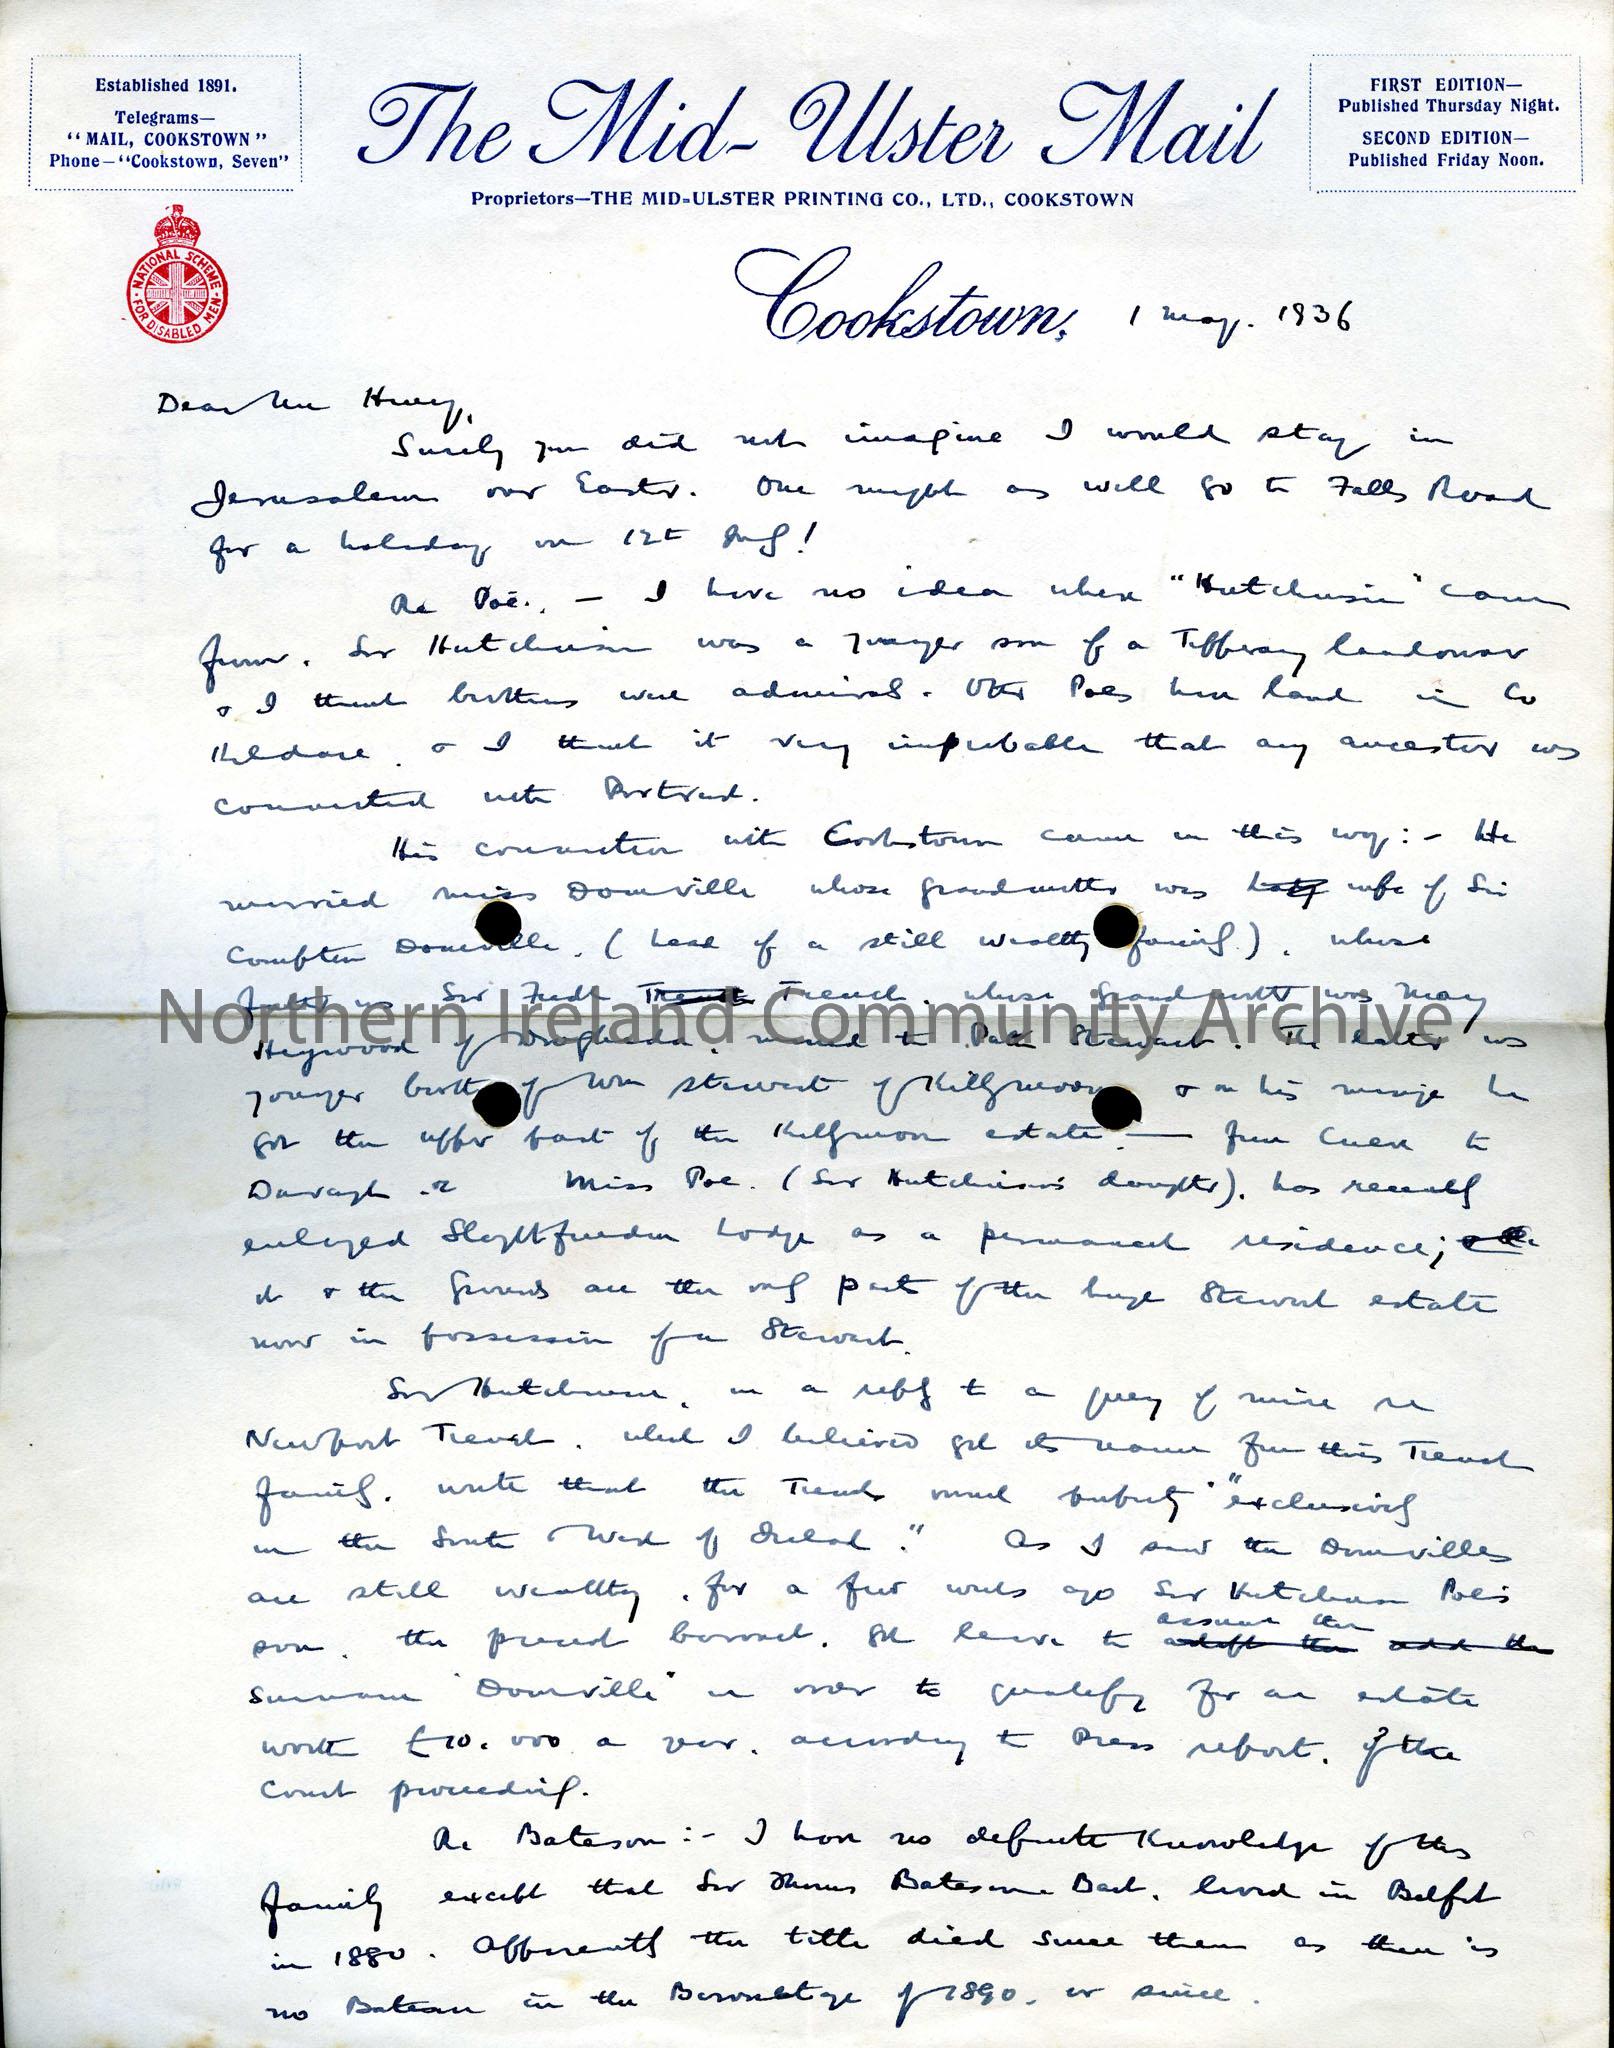 Established 1891.
Telegrams—
"MAIL, COOKSTOWN"
Phone—"Cookstown, Seven"
The Mid-Ulster Mail
Proprietors—THE MID-ULSTER PRINTING CO., LTD., COOKSTOWN
FIRST EDITION—
Published Thursday Night.
SECOND EDITION—
Published Friday Noon.
NATIONAL SCHEME
FOR DISABLED MEN
Cookstown, 1 May. 1936
Dear Mr
Surely you did not imagine I would stay in
Jerusalem over Easter. One might as well go to Falls Road
for a holiday on 12th July!
Re Poë. — I have no idea where "Hutcheson" came
from. Sir Hutcheson was a younger son of a Tipperary landowner
& I think brothers were admirals. Other Poes have land in Co
Kildare, & I think it very improbable that any ancestor was
connected with
His connection with Cookstown came in this way:- He
married Miss Domville whose grandmother was wife of Sir
Compton Domville, (head of a still wealthy family), whose
father was Sir Fredk Trench Trench, whose grandmother was Mary
Heywood of Drogheda, married to Patk Stewart. The latter was
younger brother of Wm Stewart of Killymoon & on his marriage he
got the upper part of the Killymoon estate — from to
Davagh. Miss Poe (Sir Hutcheson's daughter), has recently
enlarged Lodge as a permanent residence;
it & the grounds are the only part of the huge Stewart estate
now in possession of a Stewart.
Sir Hutcheson, in a reply to a query of mine re
Newport Trench, which I believed got its name from this Trench
family, wrote that the Trenchs owned property "exclusively
in the South & West of Ireland." As I saw the Domvilles
are still wealthy, for a few weeks ago Sir Hutcheson Poe's
son, the present baronet, got leave to assume the adopt the add the
surname "Domville" in order to qualify for an estate
worth £10,000 a year, according to Press report, of the
Court proceedings.
Re Bateson:- I have no definite knowledge of this
family except that Sir Thomas Bateson Bart. lived in Belfast
in 1880. Apparently the title died since then as there is
no Bateson in the Baronetage of 1890, or since.
Northern Ireland Community Archive